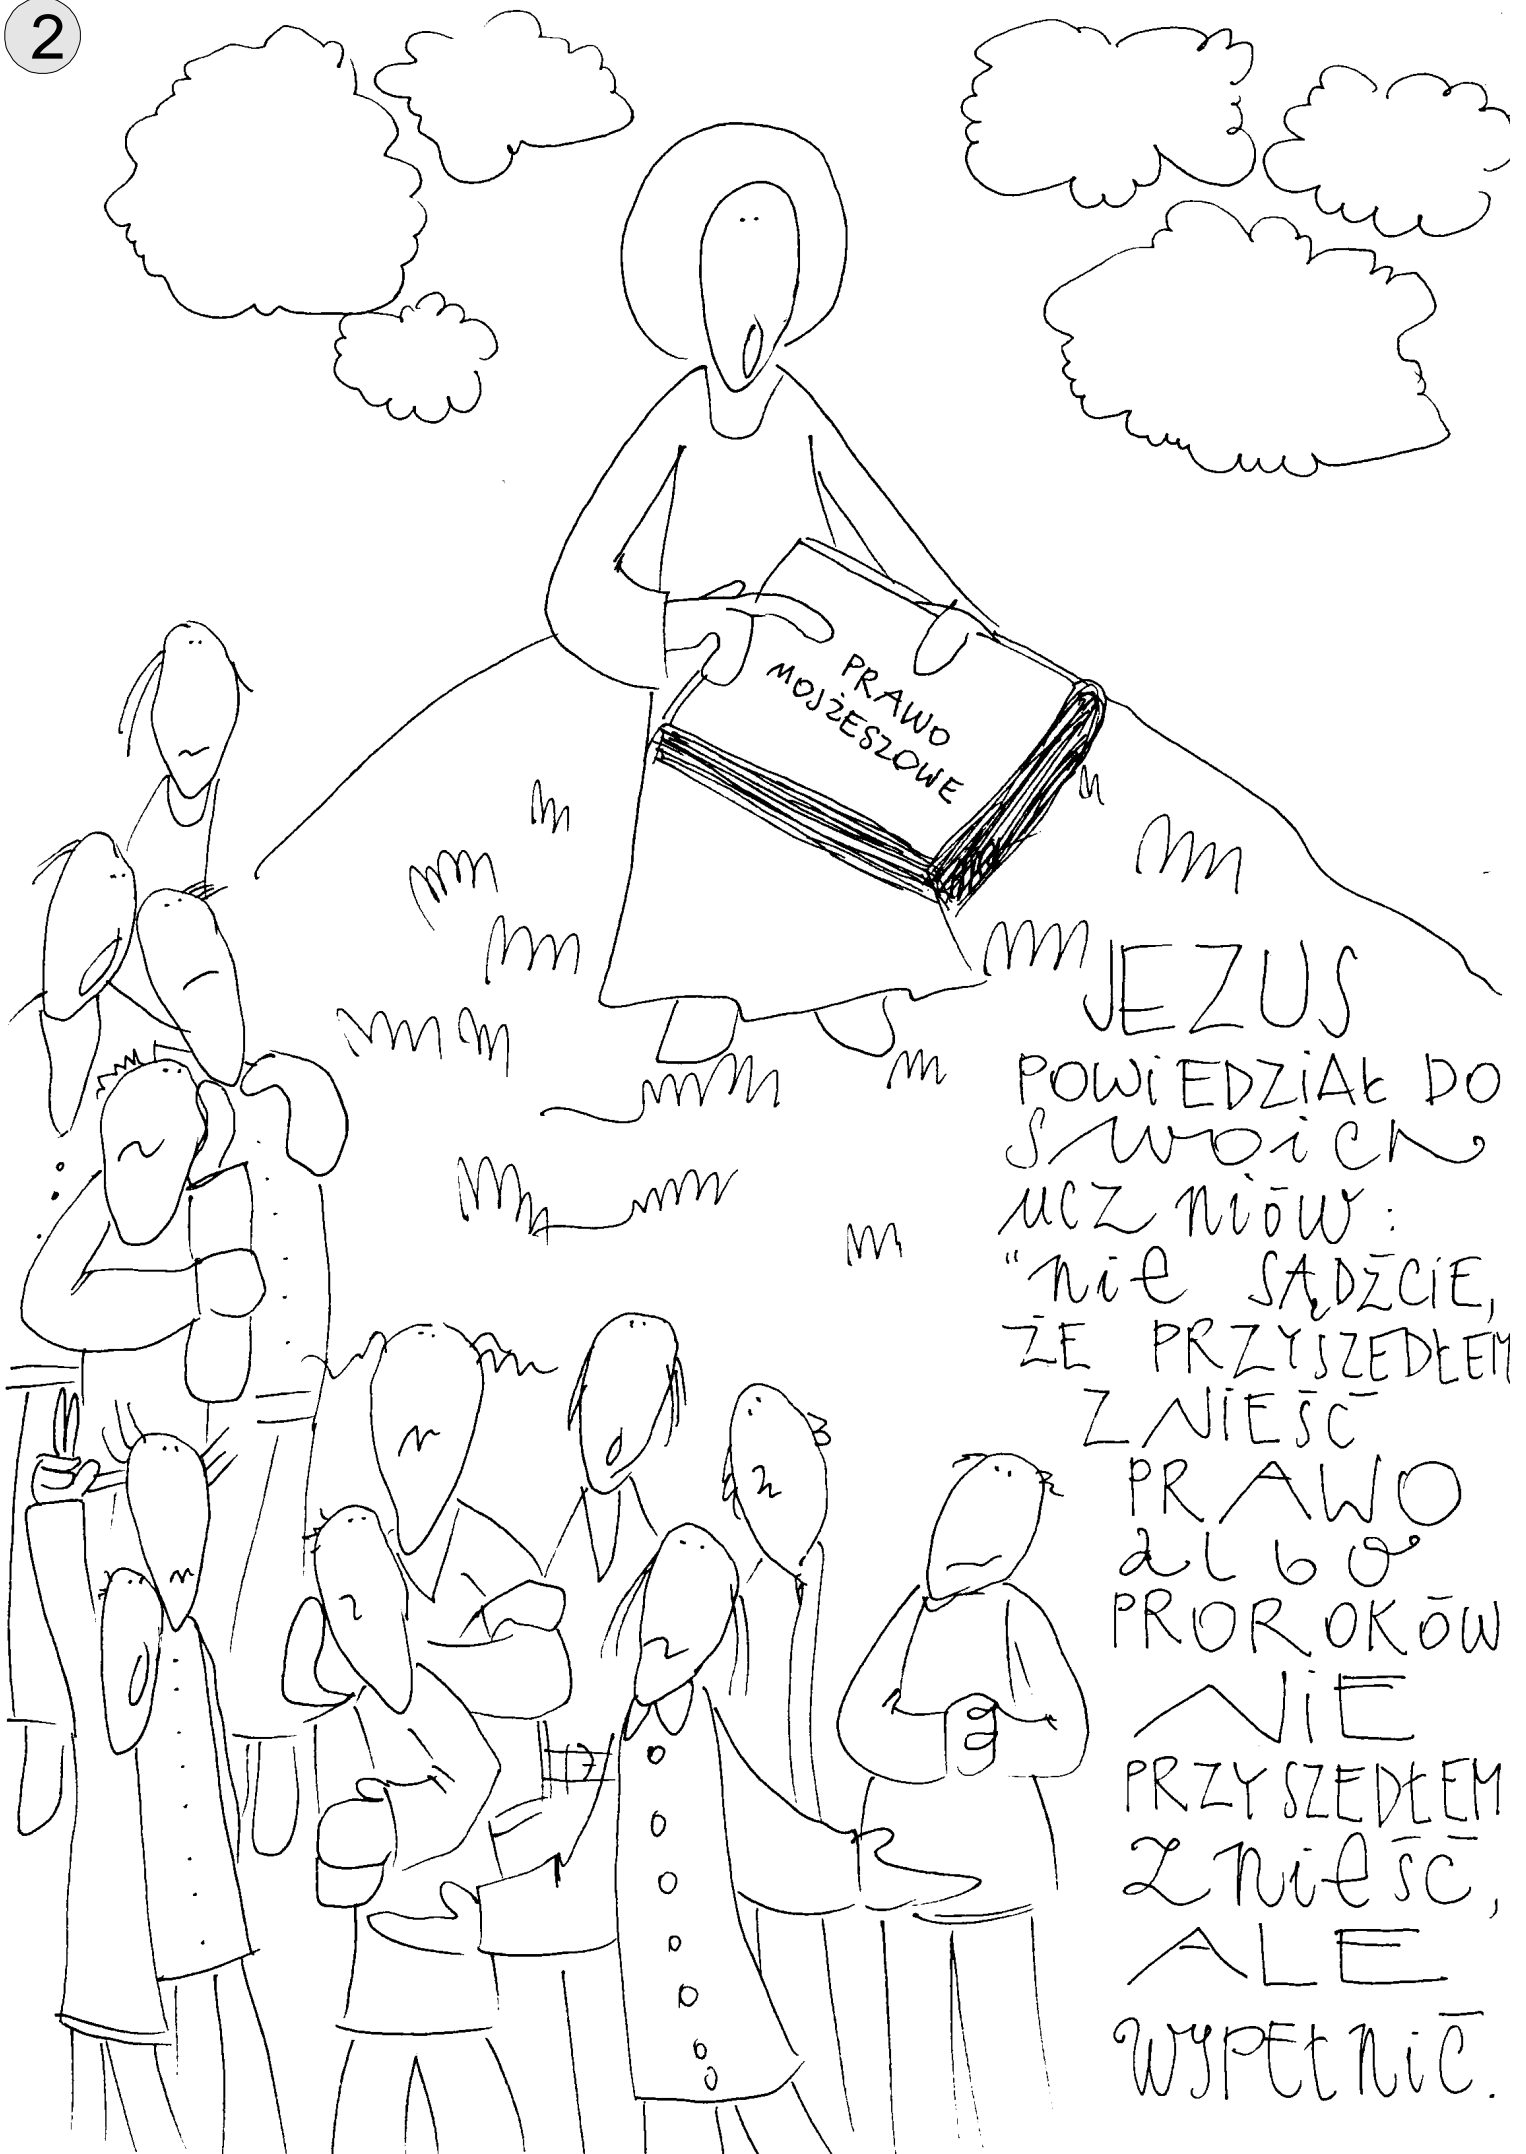 2
PRAWO
MOJŻESZOWE
JEZUS
POWiEDZiAŁ DO
SWOiCh
UCZNiÓW:
"NiE SĄDŹCiE,
ŻE PRZYSZEDŁEM
ZNiEŚĆ
PRAWO
alBO
PROROKÓW
NiE
PRZYSZEDŁEM
ZNiEŚĆ,
ALE
WYPEŁNiĆ.